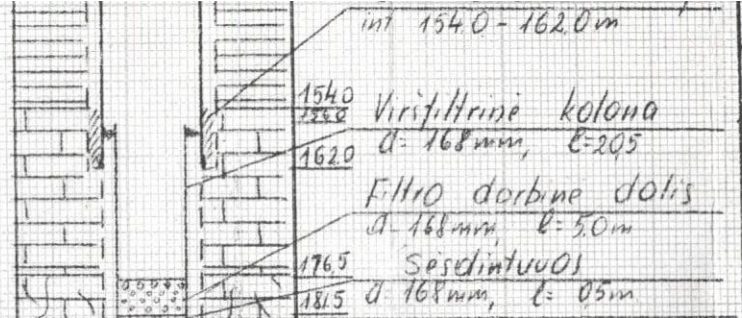 int 154.0 - 162.0 m
154.0
Viršfiltrinė kolona
162.0
d= 168 mm, l=20,5
Filtro darbinė dalis
d- 168 mm, l= 5.0 m
176,5
Sėsdintuvas
181.5
d 168 mm, l= 05 m